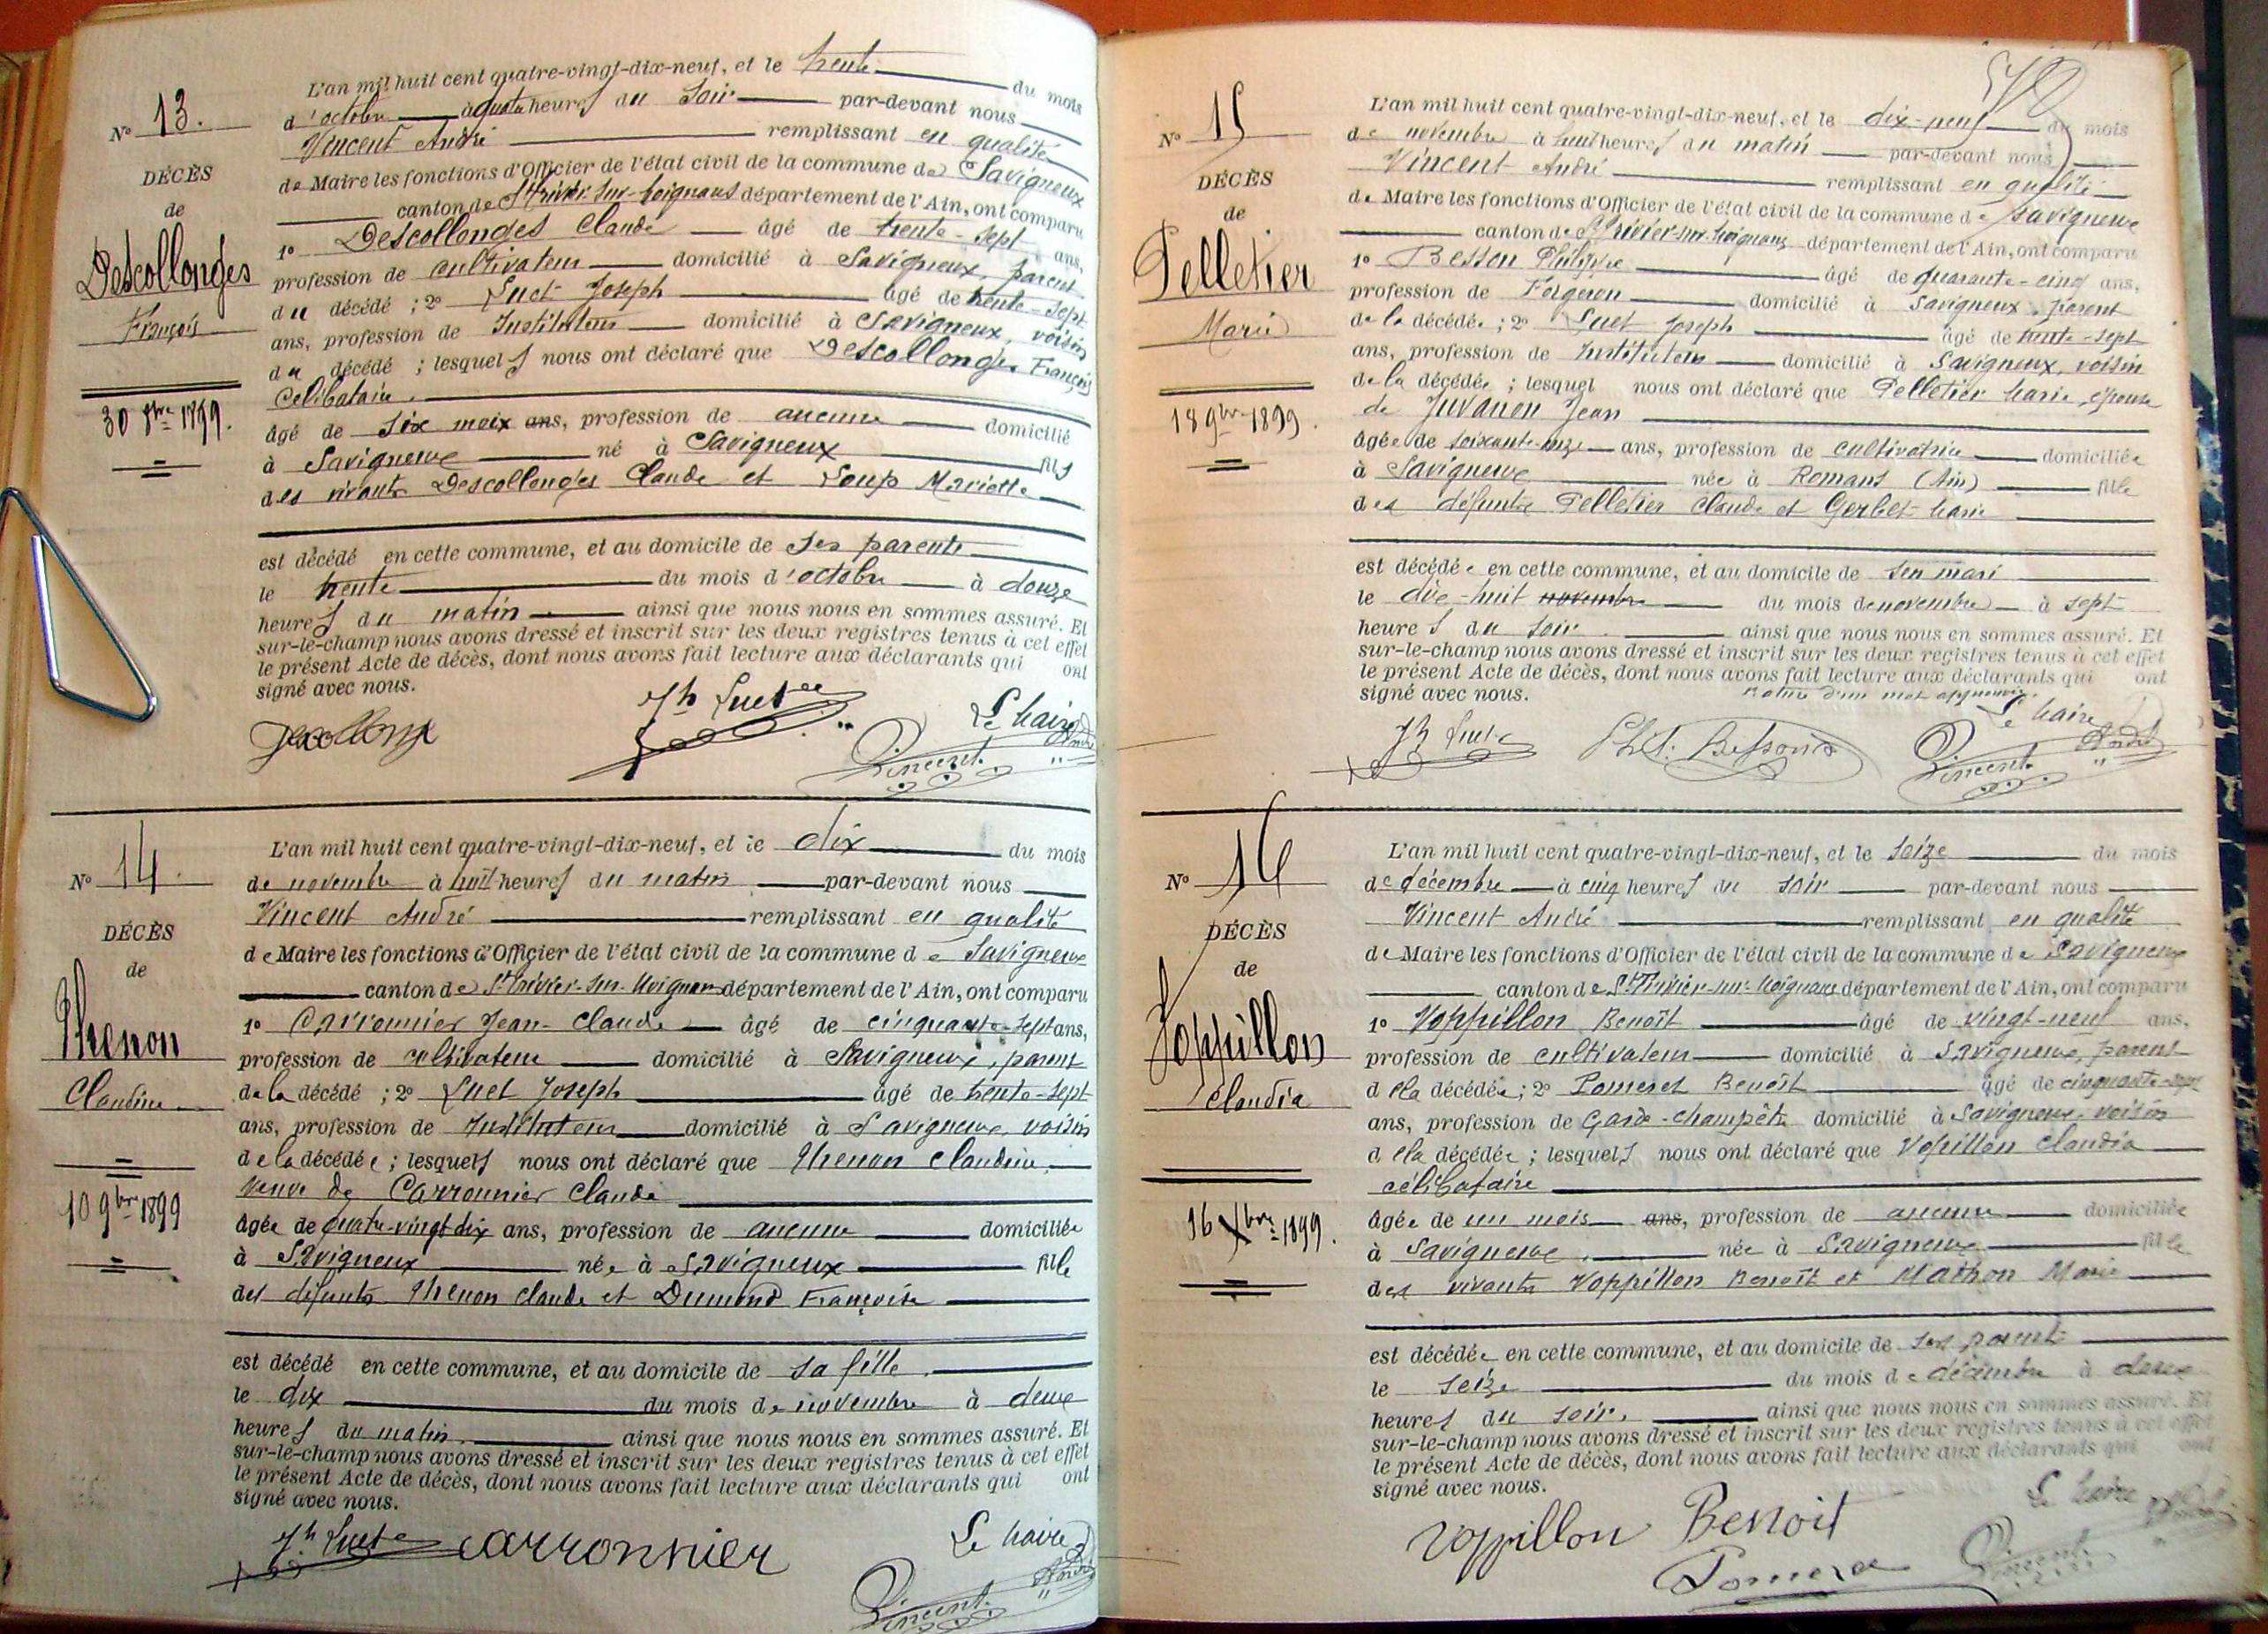 L'an mil huit cent quatre-vingt-dix-neuf, et le trente du mois
d'octobre à quatre heures du soir par-devant nous
Vincent André remplissant en qualité
de Maire les fonctions d'Officier de l'état civil de la commune de Savigneux
canton de St Trivier-sur-Moignans département de l'Ain, ont comparu
1º Descollonges Claude âgé de trente-sept ans,
profession de cultivateur domicilié à Savigneux, parent
du décédé ; 2º Suet Joseph âgé de trente-sept
ans, profession de Instituteur domicilié à Savigneux, voisin
du décédé ; lesquels nous ont déclaré que Descollonges François
Célibataire.
âgé de six mois ans, profession de aucune domicilié
à Savigneux né à Savigneux fils
des vivants Descollonges Claude et Loup Mariette
est décédé en cette commune, et au domicile de ses parents
le trente du mois d'octobre à douze
heures du matin ainsi que nous nous en sommes assuré. Et
sur-le-champ nous avons dressé et inscrit sur les deux registres tenus à cet effet
le présent Acte de décès, dont nous avons fait lecture aux déclarants qui ont
signé avec nous.
Jh Suet
Le Maire
Vincent André
Nº 13.
DÉCÈS
de
Descollonges
François
30 8bre 1899.
Nº 14.
DÉCÈS
de
Thenon
Claudine
10 9bre 1899
L'an mil huit cent quatre-vingt-dix-neuf, et le dix du mois
de novembre à huit heures du matin par-devant nous
Vincent André remplissant en qualité
de Maire les fonctions d'Officier de l'état civil de la commune de Savigneux
canton de St Trivier-sur-Moignans département de l'Ain, ont comparu
1º Carronnier Jean-Claude âgé de cinquante-sept ans,
profession de cultivateur domicilié à Savigneux, parent
de la décédé ; 2º Suet Joseph âgé de trente-sept
ans, profession de Instituteur domicilié à Savigneux, voisin
de la décédée ; lesquels nous ont déclaré que Thenon Claudine,
veuve de Carronnier Claude
âgée de quatre-vingt-dix ans, profession de aucune domiciliée
à Savigneux née à Savigneux fille
des défunts Thenon Claude et Dumond Françoise
est décédé en cette commune, et au domicile de sa fille.
le dix du mois de novembre à deux
heures du matin. ainsi que nous nous en sommes assuré. Et
sur-le-champ nous avons dressé et inscrit sur les deux registres tenus à cet effet
le présent Acte de décès, dont nous avons fait lecture aux déclarants qui ont
signé avec nous.
Jh Suet Carronnier
Le Maire
Vincent André
Nº 15
DÉCÈS
de
Pelletier
Marie
18 9bre 1899.
L'an mil huit cent quatre-vingt-dix-neuf, et le dix-neuf du mois
de novembre à huit heures du matin par-devant nous
Vincent André remplissant en qualité
de Maire les fonctions d'Officier de l'état civil de la commune de Savigneux
canton de St Trivier-sur-Moignans département de l'Ain, ont comparu
1º Besson Philippe âgé de quarante-cinq ans,
profession de Forgeron domicilié à Savigneux, parent
de la décédée ; 2º Suet Joseph âgé de trente-sept
ans, profession de Instituteur domicilié à Savigneux, voisin
de la décédée ; lesquel nous ont déclaré que Pelletier Marie, épouse
de Juvanon Jean
âgée de soixante-onze ans, profession de cultivatrice domiciliée
à Savigneux née à Romans (Ain) fille
des défunts Pelletier Claude et Gerbet Marie
est décédée en cette commune, et au domicile de son mari
le dix-huit novembre du mois de novembre à sept
heures du soir. ainsi que nous nous en sommes assuré. Et
sur-le-champ nous avons dressé et inscrit sur les deux registres tenus à cet effet
le présent Acte de décès, dont nous avons fait lecture aux déclarants qui ont
signé avec nous. d'un mot approuvée.
Jh Suet Phil. Besson
Le Maire
Vincent André
Nº 16
DÉCÈS
de
Voppillon
Claudia
16 Xbre 1899.
L'an mil huit cent quatre-vingt-dix-neuf, et le seize du mois
de décembre à cinq heures du soir par-devant nous
Vincent André remplissant en qualité
de Maire les fonctions d'Officier de l'état civil de la commune de Savigneux
canton de St Trivier-sur-Moignans département de l'Ain, ont comparu
1º Voppillon Benoît âgé de vingt-neuf ans,
profession de cultivateur domicilié à Savigneux, parent
de la décédée ; 2º Pomeret Benoît âgé de cinquante-sept
ans, profession de Garde-champêtre domicilié à Savigneux, voisin
de la décédée ; lesquels nous ont déclaré que Vopillon Claudia
célibataire
âgée de un mois ans, profession de aucune domiciliée
à Savigneux. née à Savigneux fille
des vivants Voppillon Benoît et Mathon Marie
est décédée en cette commune, et au domicile de ses parents
le seize du mois de décembre à deux
heures du soir. ainsi que nous nous en sommes assuré. Et
sur-le-champ nous avons dressé et inscrit sur les deux registres tenus à cet effet
le présent Acte de décès, dont nous avons fait lecture aux déclarants qui ont
signé avec nous.
Voppillon Benoit
Le Maire
Vincent André